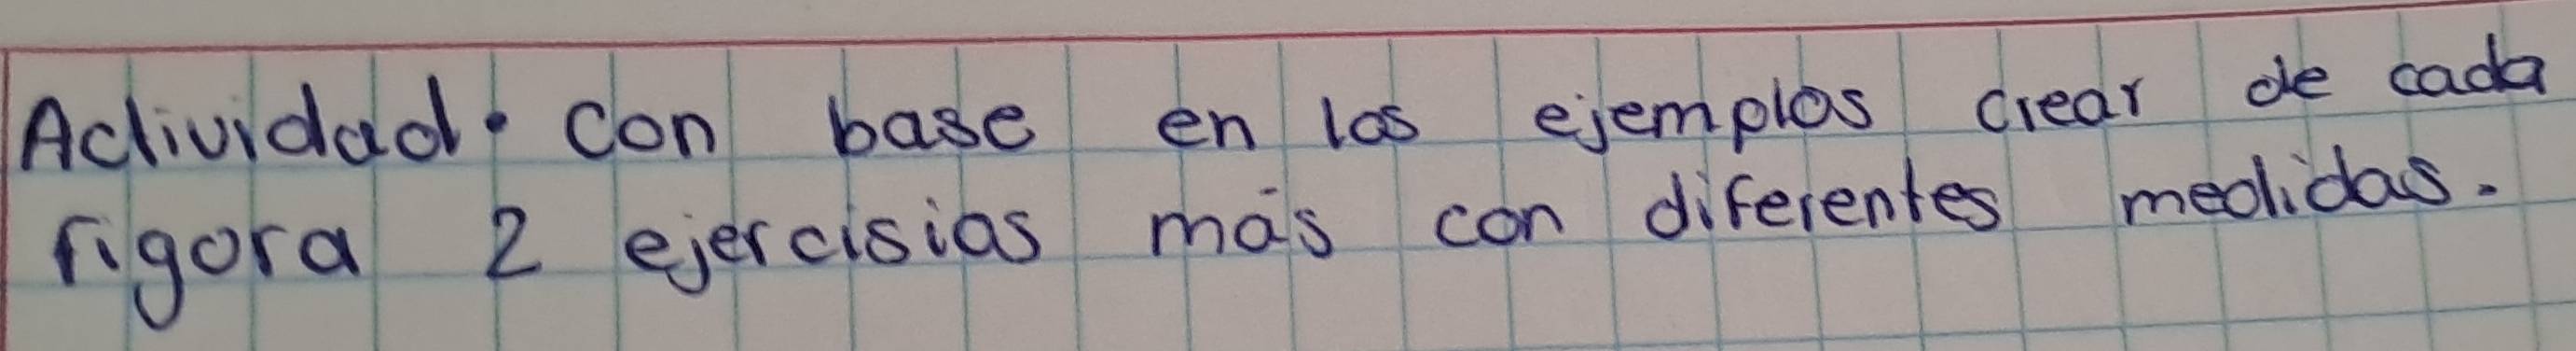 Actividad. Con base en los ejemplos crear de cada
figora 2 ejercisios más con diferentes medidas.